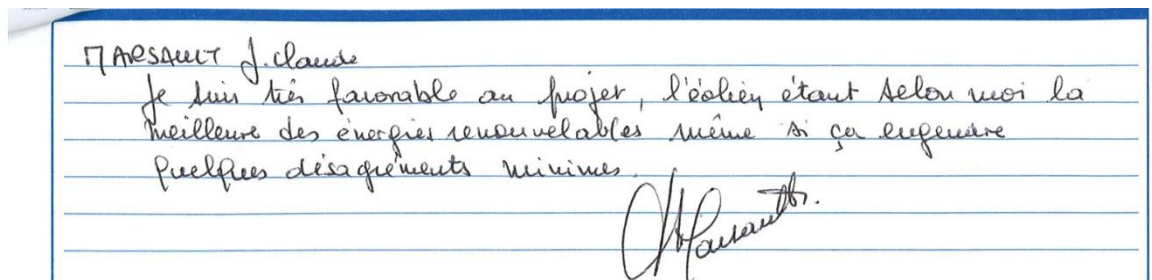 MARSAULT J. Claude
Je suis très favorable au projet, l'éolien étant selon moi la
meilleure des énergies renouvelables même si ça engendre
quelques désagréments minimes.
Marsault